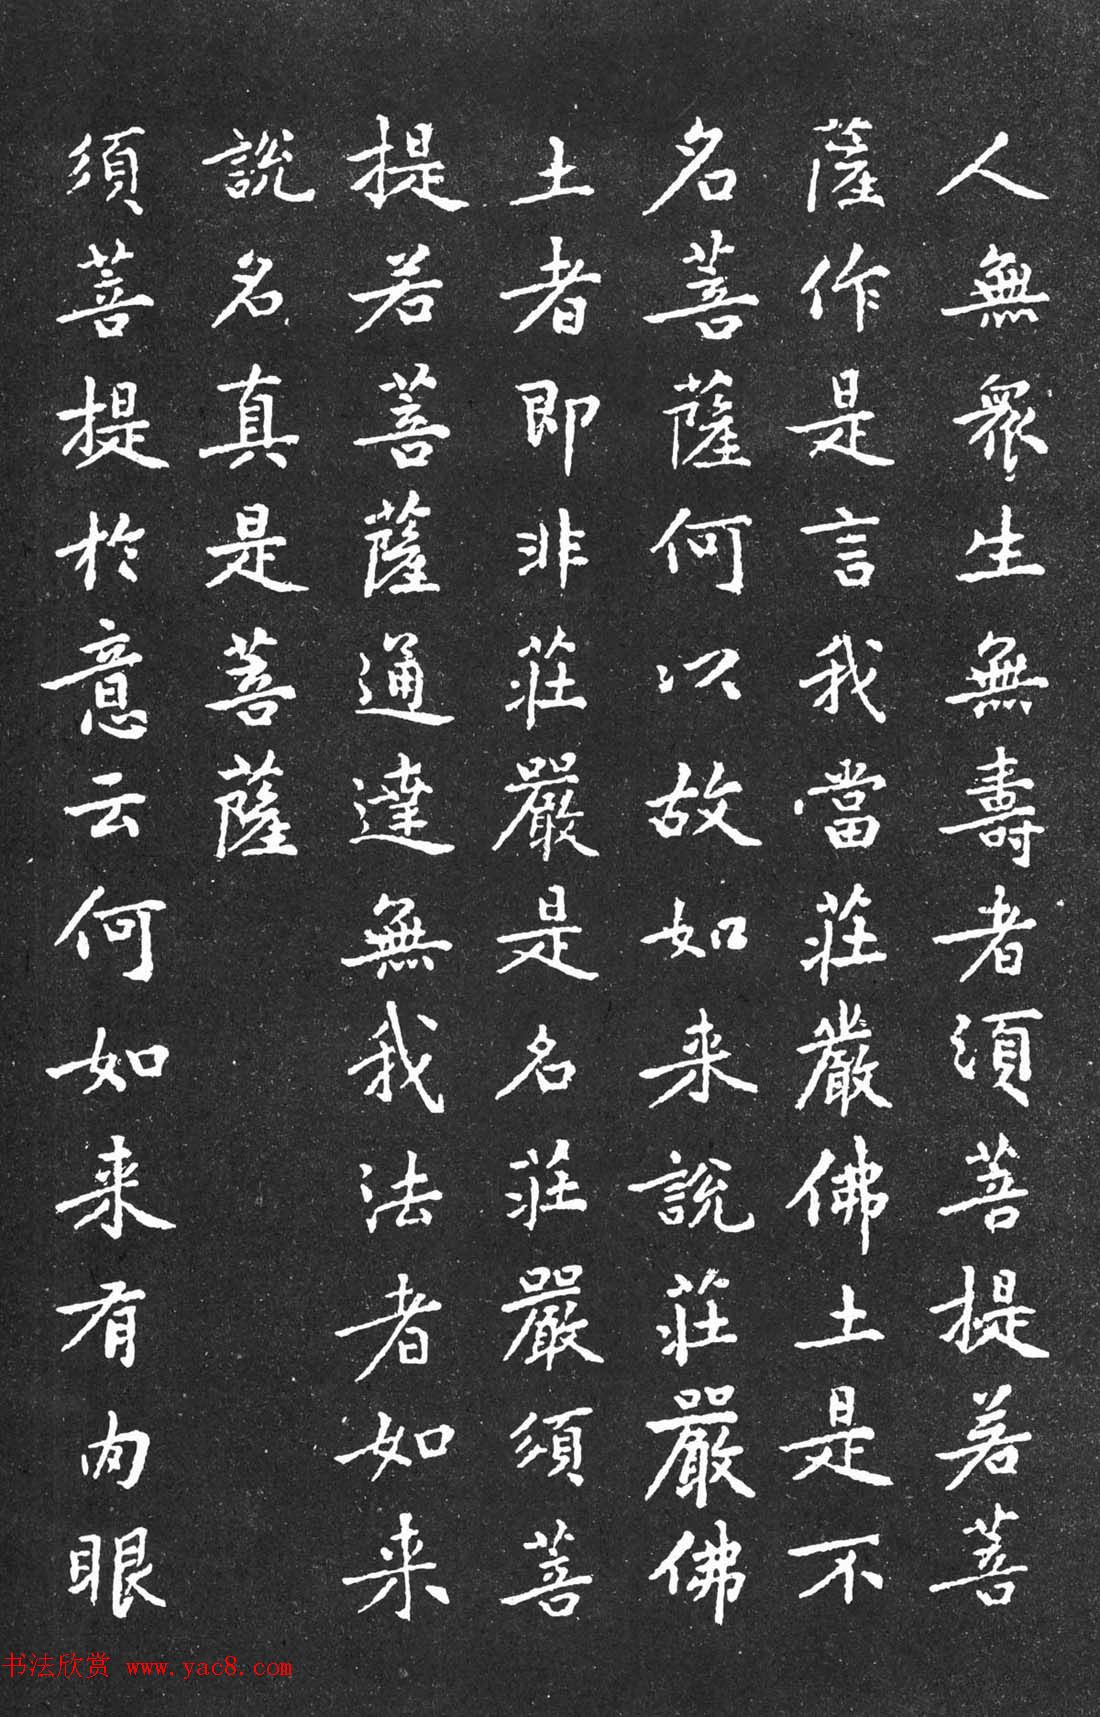 人無衆生無壽者須菩提若菩
薩作是言我當莊嚴佛土是不
名菩薩何以故如来說莊嚴佛
土者即非莊嚴是名莊嚴須菩
提若菩薩通達無我法者如来
說名真是菩薩
須菩提於意云何如来有肉眼
书法欣赏 www.yac8.com